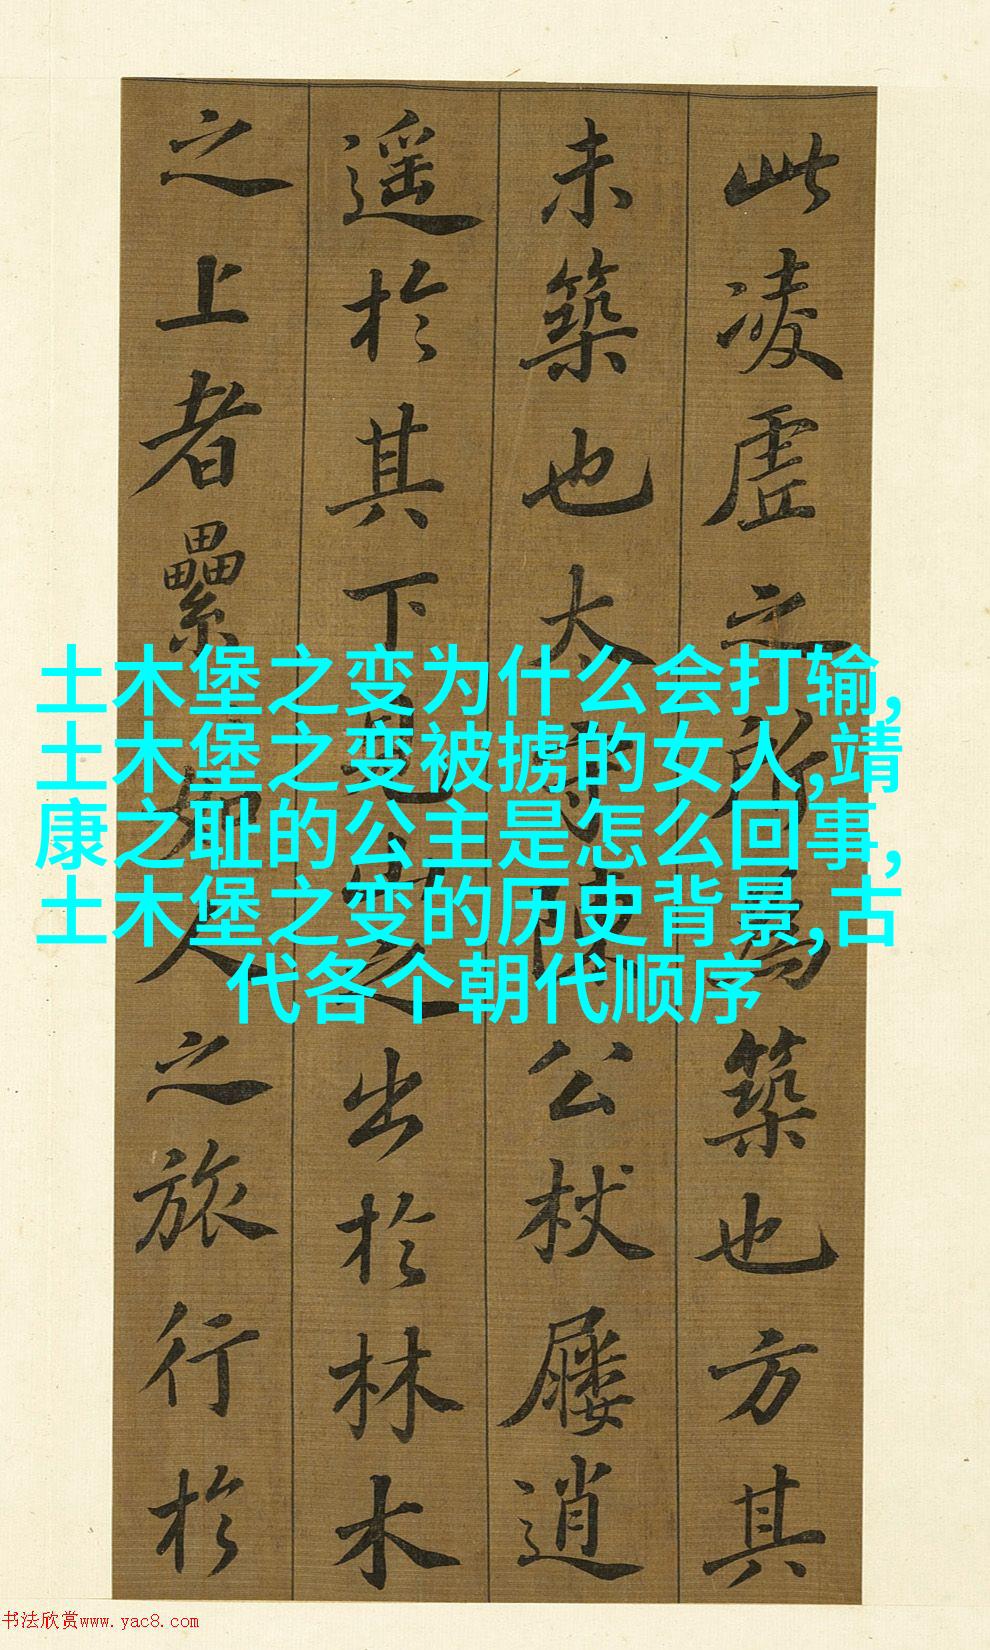 此凌虚之所為築也方其
未築也太守陳公杖屨逍
遥於其下見山之出於林木
之上者纍如人之旅行於
土木堡之变为什么会打输,
土木堡之变被掳的女人,靖
康之耻的公主是怎么回事,
土木堡之变的历史背景,古
代各个朝代顺序
书法欣赏www.yac8.com